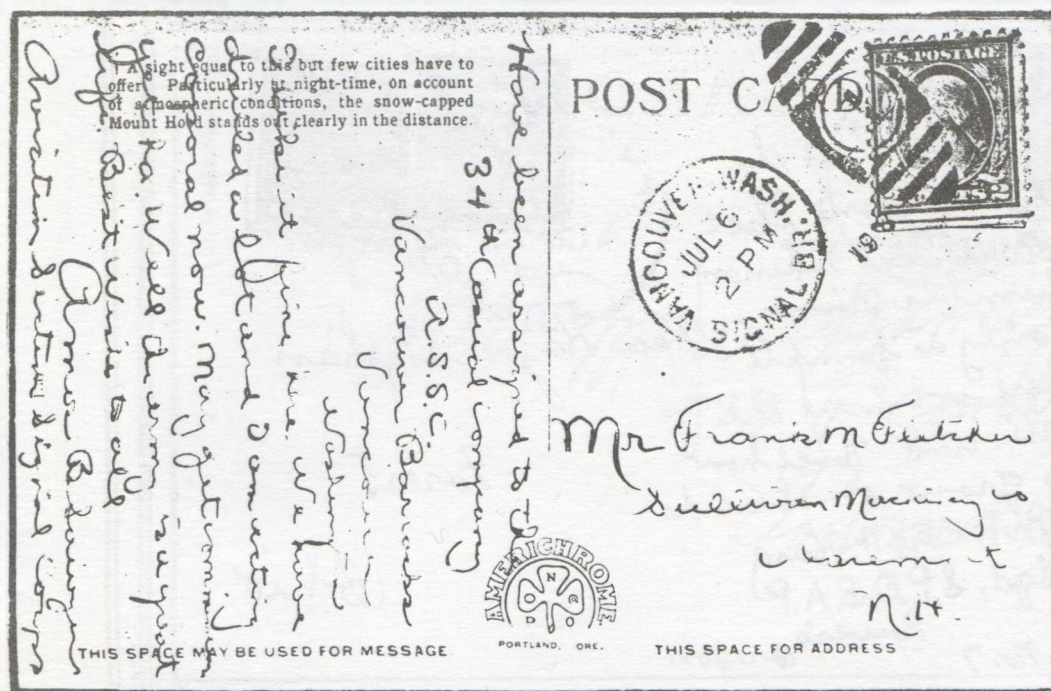 "A sight equal to this but few cities have to
offer. Particularly at night-time, on account
of atmospheric conditions, the snow-capped
Mount Hood stands out clearly in the distance.
POST CARD
U.S. POSTAGE
VANCOUVER, WASH.
JUL 6
2 PM
SIGNAL BR.
191
Have been assigned to the
34th Casual Company
A.S.S.C.
Vancouver Barracks
Vancouver
Wash
fine here. We have
all and
Casual now. May get
yet ha. Well
bye. Best Wishes to all
Amos
Aviation Section Signal Corps
Mr Frank M Fletcher
Sullivan Machinery Co
Claremont
N.H.
AMERICHROME
PORTLAND, ORE.
THIS SPACE MAY BE USED FOR MESSAGE
THIS SPACE FOR ADDRESS